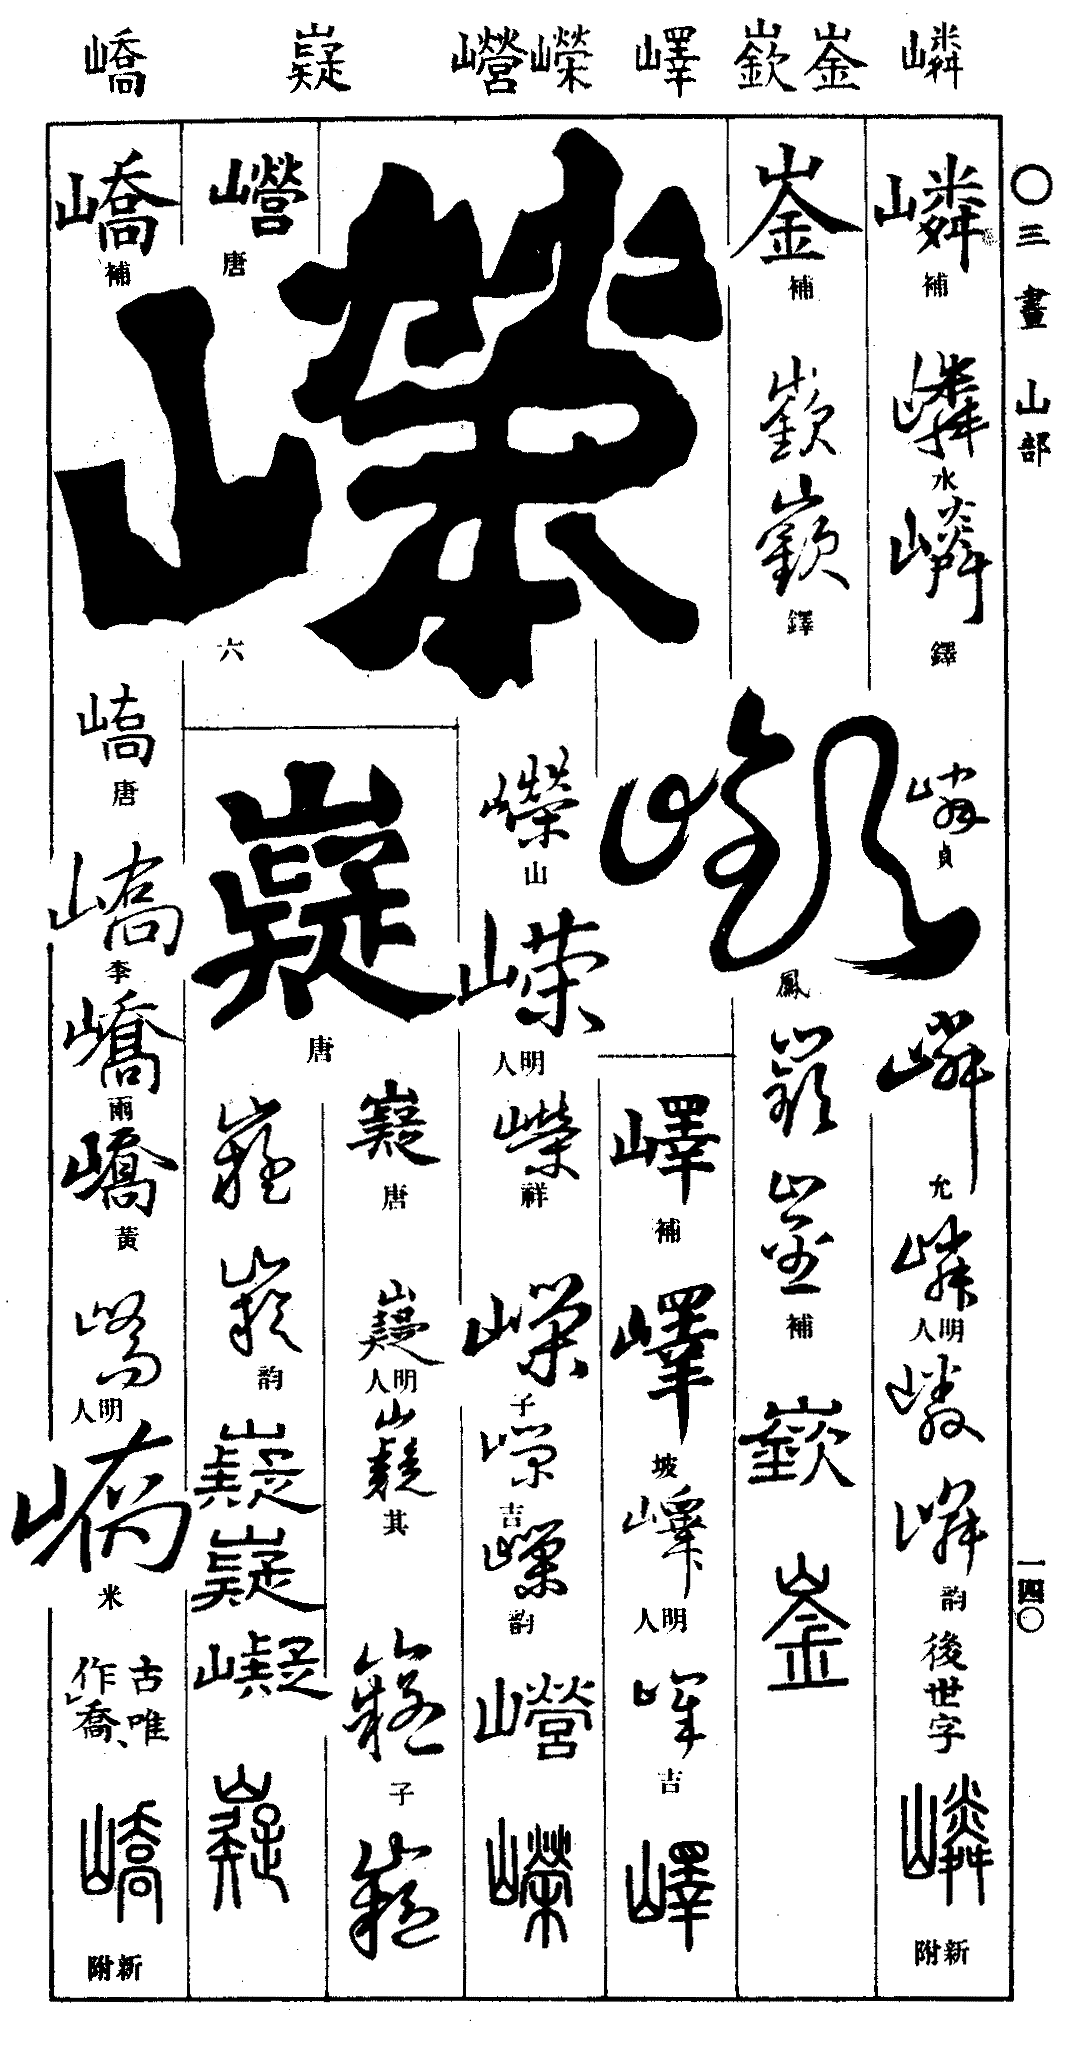 〇三畫 山部
一四〇
嶙 崟 嶔 嶧 嶸 㠕 嶷 嶠
嶙 補
嶙 水
嶙 鐸
嶙 貞
嶙 允
嶙 明人
嶙
嶙 韵
後世字
嶙 新附
崟 補
嶔
嶔 鐸
嶔 鳳
嶔
崟 補
嶔
崟
嶧 補
嶧 坡
嶧 明人
嶧 吉
嶧
嶸 六
嶸 山
嶸 明人
嶸 祥
嶸 子
嶸 吉
嶸 韵
㠕
嶸
㠕 唐
嶷 唐
嶷 唐
嶷 明人
嶷 其
嶷 子
嶷
嶷
嶷 韵
嶷
嶷
嶷
嶷
嶠 補
嶠 唐
嶠 李
嶠 雨
嶠 黃
嶠 明人
嶠 米
古唯
作喬、
嶠 新附